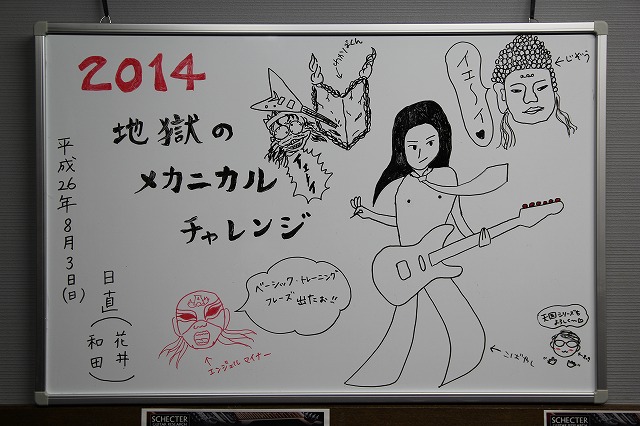 2014
地獄の
メカニカル
チャレンジ
平成26年8月3日(日)
日直(花井
和田)
イエ〜イ
じぞう
イェーイ
ベーシック・トレーニング
フレーズ 出たお!!
エンジェル マイナー
こばやし
天国シリーズも
よろしく〜
SCHECTER
GUITAR RESEARCH
SCHECTER